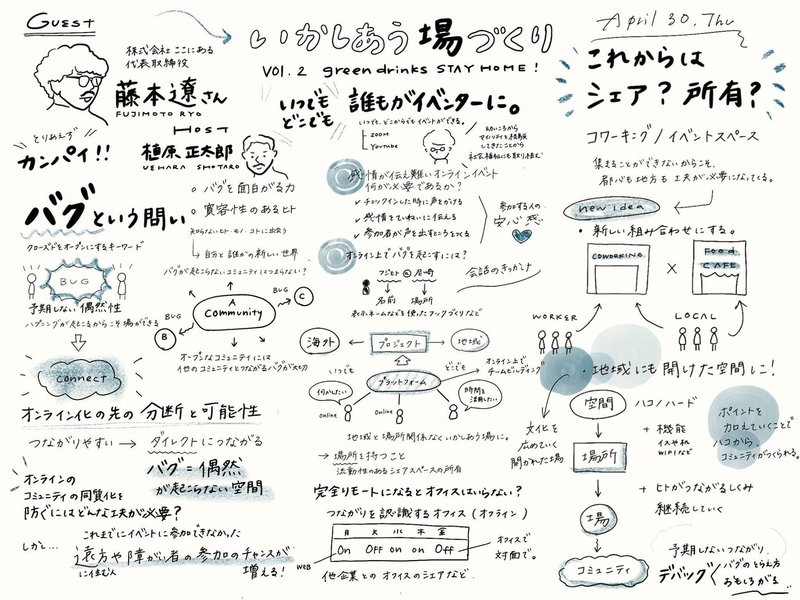 GUEST
株式会社ここにある
代表取締役
藤本遼さん
FUJIMOTO RYO
HOST
植原正太郎
UEHARA SHOTARO
とりあえず
カンパイ!!
バグという問い
クローズドをオープンにするキーワード
BUG
予期しない偶然性
ハプニングが起こるからこそ場ができる
connect
オンライン化の先の分断と可能性
つながりやすい → ダイレクトにつながる
バグ=偶然
が起こらない空間
オンラインの
コミュニティの同質化を
防ぐにはどんな工夫が必要?
しかし…
これまでにイベントに参加できなかった
遠方や障がい者の参加のチャンスが
に住む人
増える!
バグを面白がる力
寛容性のあるヒト
知らないヒト・モノ・コトに出会う
自分と誰かの新しい世界
バグが起こらないコミュニティはつまらない?
A
Community
BUG
B
BUG
C
オープンなコミュニティには
他のコミュニティとつながるバグが大切
いかしあう場づくり
VOL.2 greendrinks STAY HOME!
いつでも
どこでも
誰もがイベンターに。
いつでも、どこからでもイベントができる。
ZOOM
Youtube
幼いころから
マイノリティを経験
してきたことから
社会福祉にも取り組む
感情が伝え難いオンラインイベント
何が必要であるか?
チェックインした時に声をかける
感情をていねいに伝える
参加者が声を出すところをつくる
参加する人の
安心感
オンライン上でバグを起こすには?
フジモト @ 尼崎
名前 場所
会話のきっかけ
表示ネームなどを使ったフックづくりなど
海外
プロジェクト
地域
いつでも
どこでも
プラットフォーム
オンライン上で
チームビルディング
何かしたい
時間を
活用したい
online
Online
online
地域と場所関係なくいかしあう場に。
場所を持つこと
流動性のあるシェアスペースの所有
完全リモートになるとオフィスはいらない?
つながりを認識するオフィス(オフライン)
月 火 水 木 金
On Off on on Off
WEB
オフィスで
対面で。
他企業とのオフィスのシェアなど
April 30. Thu
これからは
シェア? 所有?
コワーキング/イベントスペース
集まることができないからこそ、
都心も地方も工夫が必要になってくる。
new idea
・新しい組み合わせにする。
COWORKING
×
FOOD
CAFE
WORKER
LOCAL
・地域にも開けた空間に!
文化を
広めていく
開かれた場
空間
ハコ/ハード
+ 機能
イスや机
WIFIなど
場所
+ ヒトがつながるしくみ
継続していく
場
コミュニティ
ポイントを
加えていくことで
ハコから
コミュニティがつくられる。
予期しないつながり
デバッグ
バグのとらえ方
おもしろがる